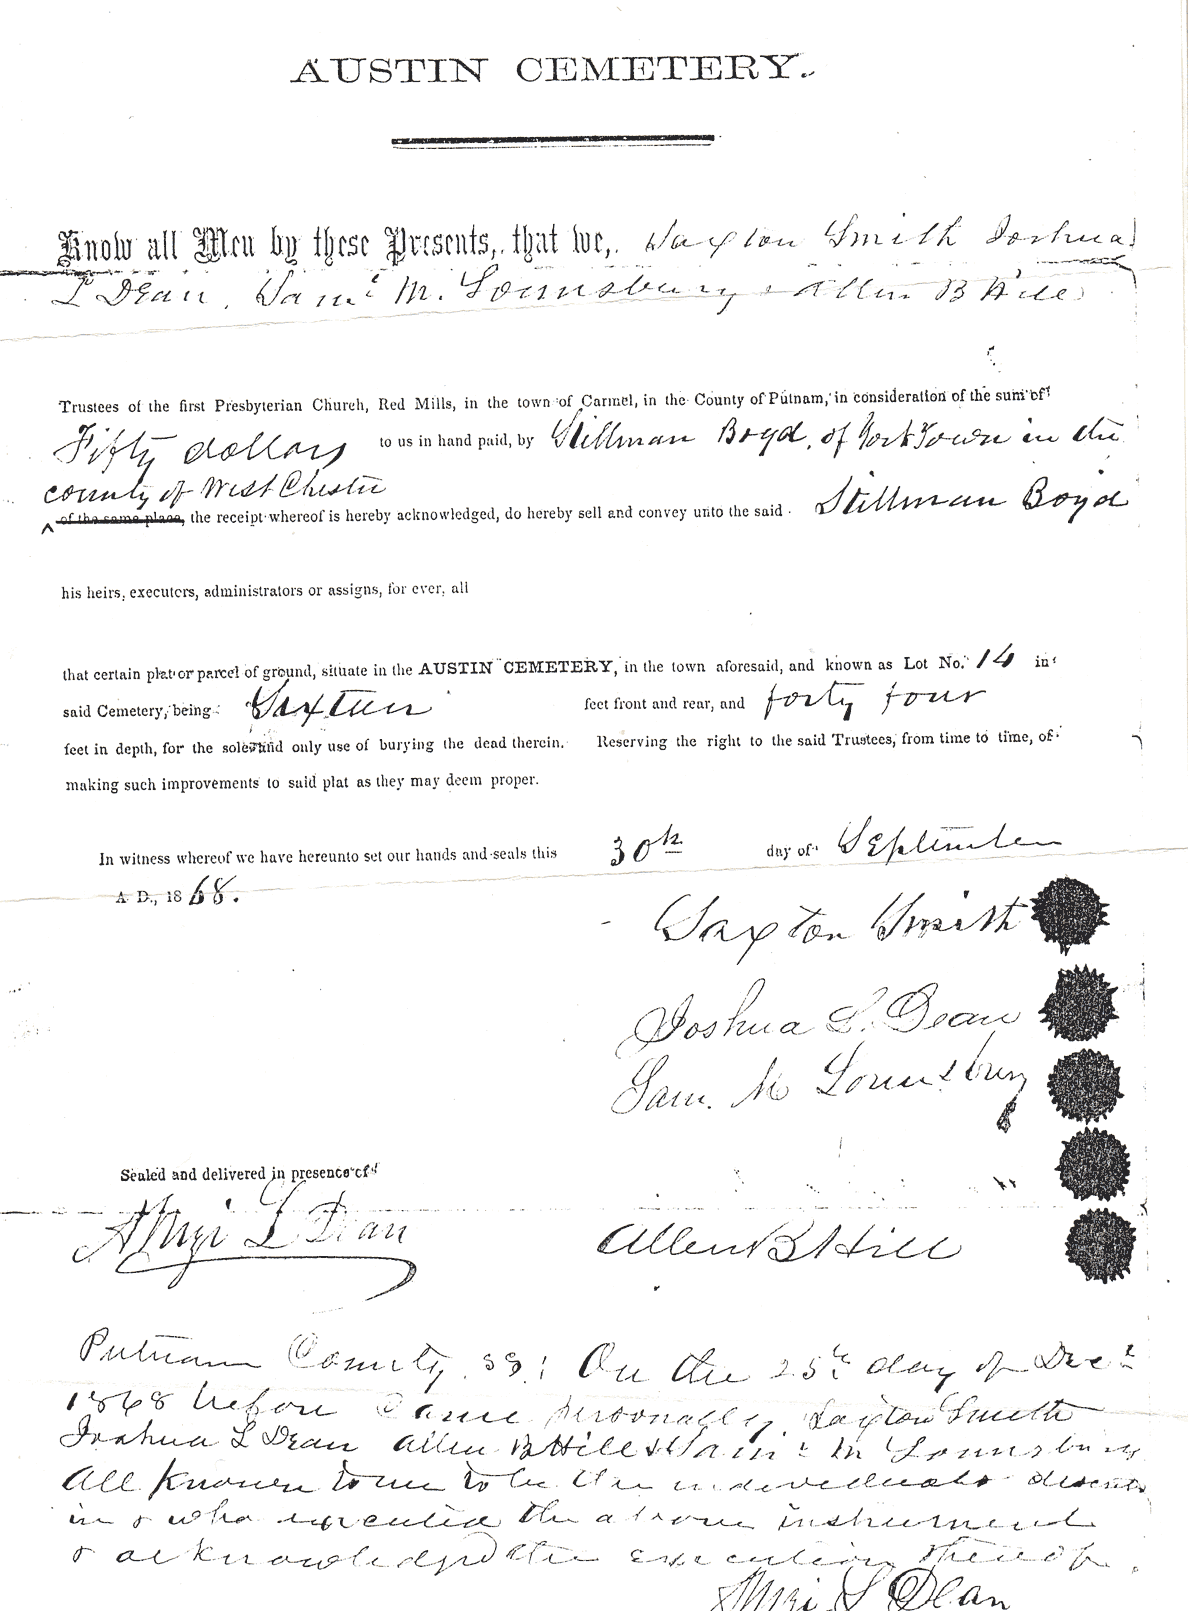 AUSTIN CEMETERY.
Know all Men by these Presents, that we, Saxton Smith Joshua
L Dean, Saml M. Lounsbury & Allen B Hill
Trustees of the first Presbyterian Church, Red Mills, in the town of Carmel, in the County of Putnam, in consideration of the sum of
Fifty dollars to us in hand paid, by Stillman Boyd, of York Town in the
county of West Chester
^ of the same place, the receipt whereof is hereby acknowledged, do hereby sell and convey unto the said Stillman Boyd
his heirs, executors, administrators or assigns, for ever, all
that certain plat or parcel of ground, situate in the AUSTIN CEMETERY, in the town aforesaid, and known as Lot No. 14 in
said Cemetery, being Sixteen feet front and rear, and forty four
feet in depth, for the sole and only use of burying the dead therein. Reserving the right to the said Trustees, from time to time, of
making such improvements to said plat as they may deem proper.
In witness whereof we have hereunto set our hands and seals this 30th day of September
A D., 1868.
Saxton Smith
Joshua L. Dean
Sam. M Lounsbury
Sealed and delivered in presence of
Amzi L Dean
Allen B Hill
Putnam County ss: On the 25th day of Decr
1868 before came personally Saxton Smith
Joshua L Dean Allen B Hill & Saml M Lounsbury
All known to me to be the individuals described
in & who executed the above instrument
& acknowledged the execution thereof.
Amzi L Dean